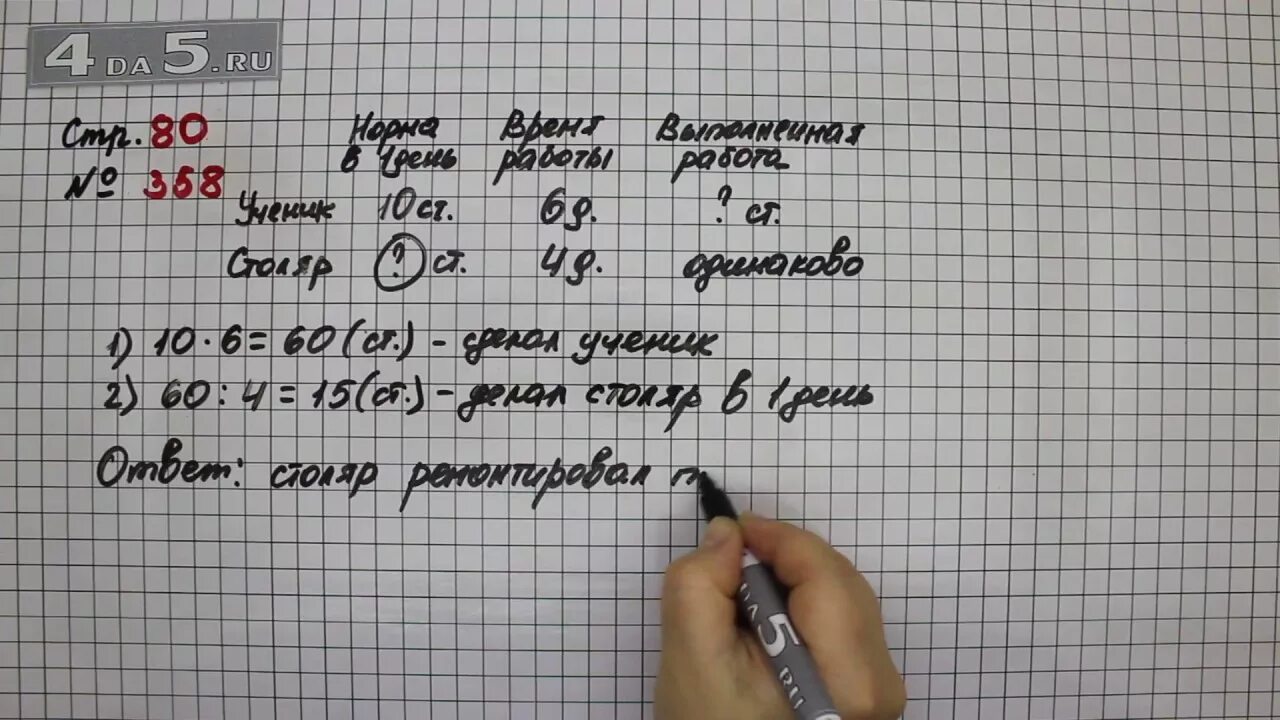 4DA5.RU
Стр. 80
№ 358
Норма в 1 день Время работы Выполненная работа
Ученик 10 ст. 6 д. ? ст.
Столяр ? ст. 4 д. одинаково
1) 10 · 6 = 60 (ст.) - сделал ученик
2) 60 : 4 = 15 (ст.) - делал столяр в 1 день
Ответ: столяр ремонтировал п
DA5.RU